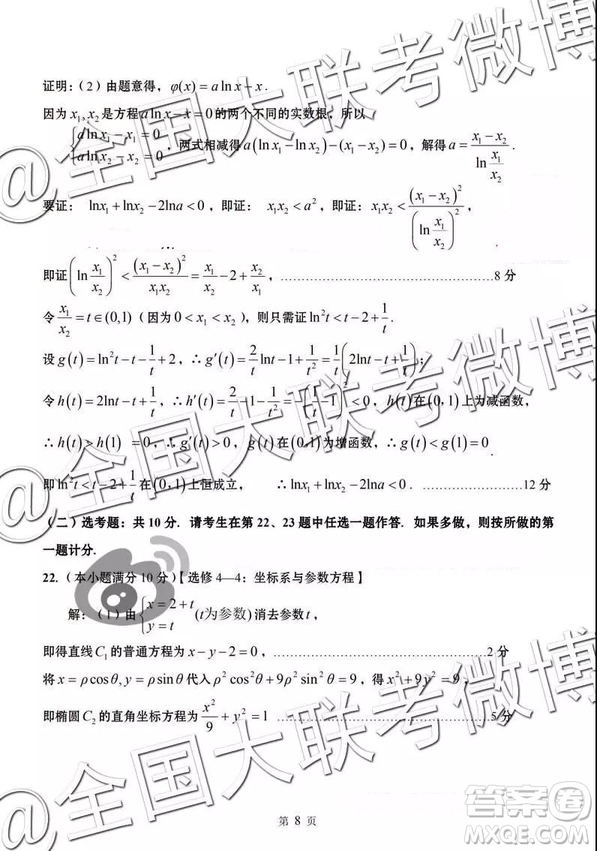 证明:(2)由题意得,φ(x)=alnx-x.
因为x₁,x₂是方程alnx-x=0的两个不同的实数根,所以
{alnx₁-x₁=0 alnx₂-x₂=0,两式相减得a(lnx₁-lnx₂)-(x₁-x₂)=0,解得a=(x₁-x₂)/ln(x₁/x₂).
要证:lnx₁+lnx₂-2lna<0,即证:x₁x₂<a²,即证:x₁x₂<(x₁-x₂)²/(ln(x₁/x₂))²,
即证(ln(x₁/x₂))²<(x₁-x₂)²/(x₁x₂)=x₁/x₂-2+x₂/x₁,……………………8分
令x₁/x₂=t∈(0,1)(因为0<x₁<x₂),则只需证ln²t<t-2+1/t.
设g(t)=ln²t-t-1/t+2,∴g′(t)=(2/t)lnt-1+1/t²=(1/t)(2lnt-t+1/t);
令h(t)=2lnt-t+1/t,∴h′(t)=2/t-1-1/t²=-(1/t-1)²<0,h(t)在(0,1)上为减函数,
∴h(t)>h(1)=0,∴g′(t)>0,g(t)在(0,1)为增函数,∴g(t)<g(1)=0
即ln²t<t-2+1/t在(0,1)上恒成立,∴lnx₁+lnx₂-2lna<0.……………………12分
(二)选考题:共10分.请考生在第22、23题中任选一题作答.如果多做,则按所做的第
一题计分.
22.(本小题满分10分)【选修4—4:坐标系与参数方程】
解:(1)由{x=2+t y=t(t为参数)消去参数t,
即得直线C₁的普通方程为x-y-2=0,……………………2分
将x=ρcosθ,y=ρsinθ代入ρ²cos²θ+9ρ²sin²θ=9,得x²+9y²=9,
即椭圆C₂的直角坐标方程为x²/9+y²=1……………………5分
第 8 页
@全国大联考微博
@全国大联考微博
@全国大联考微博
答案圈
MXQE.COM